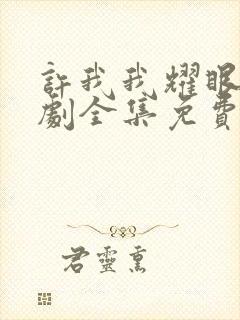 許我我耀眼
劇全集免費
君靈熏